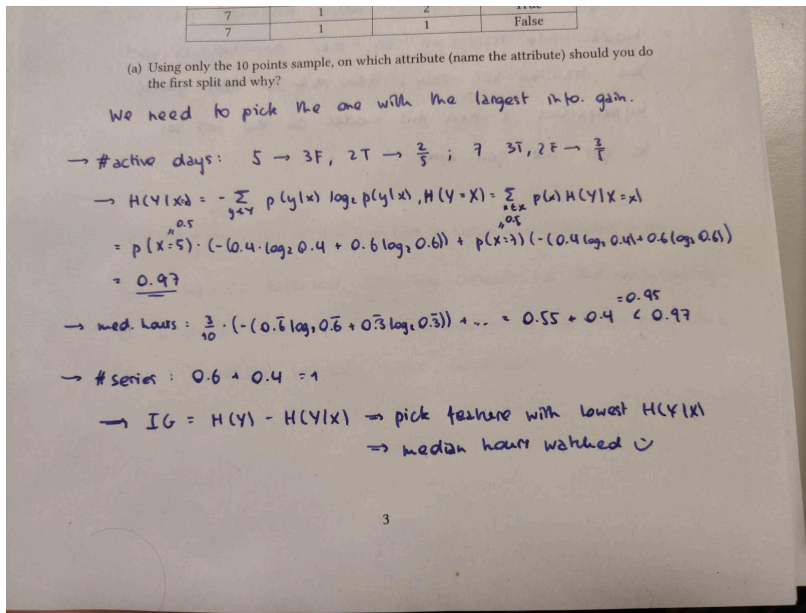 7 1 2 True
7 1 1 False
(a) Using only the 10 points sample, on which attribute (name the attribute) should you do
the first split and why?
We need to pick the one with the largest info. gain.
→ #active days: 5 → 3F, 2T → 2/5 ; 7 3T, 2F → 3/5
→ H(Y|X) = - Σ_{y∈Y} p(y|x) log₂ p(y|x), H(Y=X) = Σ_{x∈X} p(x) H(Y|X=x)
"0.5 "0.5
= p(X=5) · (-(0.4·log₂ 0.4 + 0.6 log₂ 0.6)) + p(X=7) (-(0.4 log₂ 0.4)+0.6 log₂ 0.6))
= 0.97
=0.95
→ med. hours : 3/10 · (-(0.6̄ log₂ 0.6̄ + 0.3̄ log₂ 0.3̄)) + ... = 0.55 + 0.4 < 0.97
→ # series : 0.6 + 0.4 = 1
→ IG = H(Y) - H(Y|X) ⇒ pick feature with lowest H(Y|X)
⇒ median hours watched
3